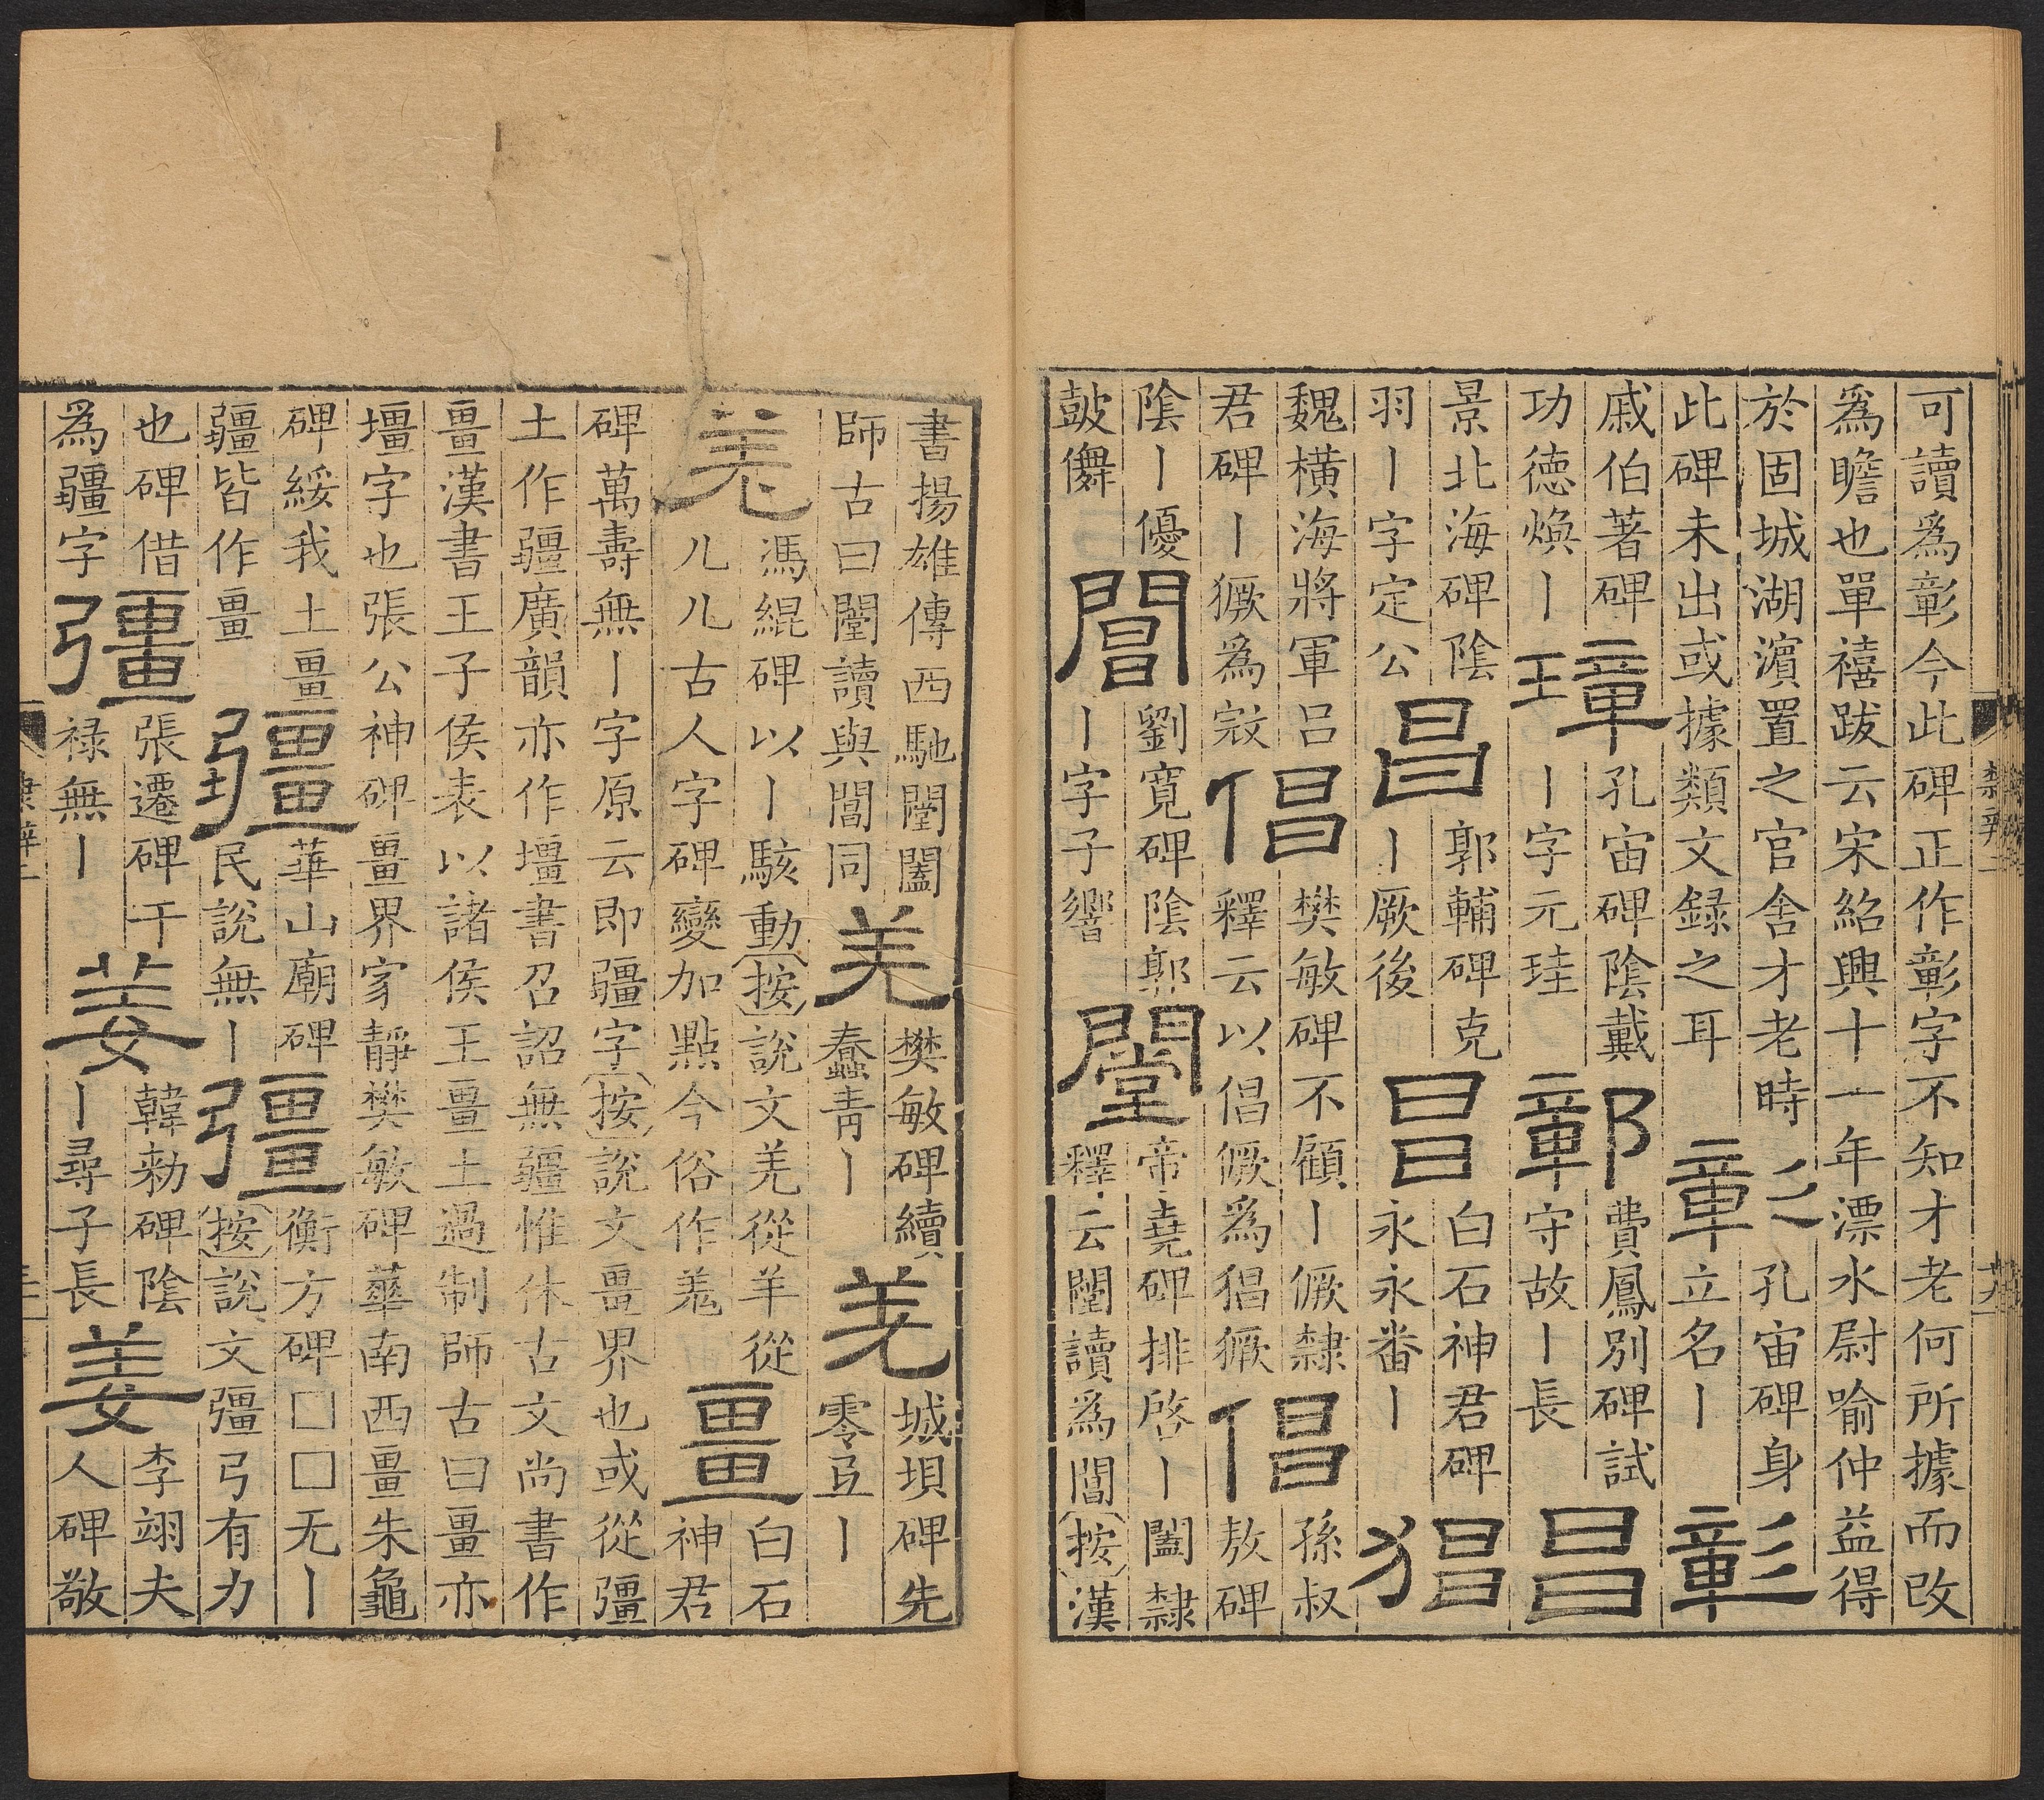 可讀爲彰今此碑正作彰字不知才老何所據而改
爲瞻也單禧跋云宋紹興十一年漂水尉喻仲益得
於固城湖濱置之官舍才老時
此碑未出或據類文録之耳
彰
孔宙碑身
立名丨
彰
戚伯著碑
功德煥丨
璋
孔宙碑陰戴
丨字元珪
鄣
費鳳別碑試
守故丨長
昌
景北海碑陰
羽丨字定公
昌
郭輔碑克
丨厥後
昌
白石神君碑
永永番丨
猖
魏橫海將軍呂
君碑丨獗爲㓂
倡
樊敏碑不顧丨㒧隸
釋云以倡㒧爲猖獗
倡
孫叔
敖碑
陰丨優
鼓儛
閶
劉寬碑陰郭
丨字子響
闛
帝堯碑排啓丨闔隸
釋云闛讀爲閶按漢
書揚雄傳西馳闛闔
師古曰闛讀與閶同
羌
樊敏碑續
蠢青丨
羌
城垻碑先
零丨
羌
馮緄碑以丨駭動按說文羌從羊從
儿儿古人字碑變加點今俗作羗
畺
白石
神君
碑萬壽無丨字原云即疆字按說文畺界也或從彊
土作疆廣韻亦作壃書召詔無疆惟休古文尚書作
畺漢書王子侯表以諸侯王畺土過制師古曰畺亦
壃字也張公神碑畺界家靜樊敏碑華南西畺朱龜
碑綏我土畺
疆皆作畺
疆
華山廟碑
民說無丨
彊
衡方碑□□无丨
按說文彊弓有力
也碑借
爲疆字
彊
張遷碑干
祿無丨
姜
韓勑碑陰
丨尋子長
姜
李翊夫
人碑敬